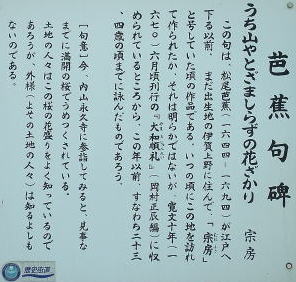 芭蕉句碑
うち山やとざましらずの花ざかり　宗房
この句は、松尾芭蕉（一六四四－一六九四）が江戸へ
下る以前、まだ出生地の伊賀上野に住んで、「宗房」
と号していた頃の作品である。いつの頃にこの地を訪れ
て作られたか、それは明らかではないが、寛文十年（一
六七〇）六月頃刊行の『大和順礼』（岡村正辰編）に収
められているところから、この年以前、すなわち二十三
、四歳の頃までに詠んだものであろう。
［句意］今、内山永久寺に参詣してみると、見事な
までに満開の桜でうめつくされている。
土地の人々はこの桜の花盛りをよく知っているので
あろうが、外様（よその土地の人々）は知るよしも
ないのである。
歴史街道